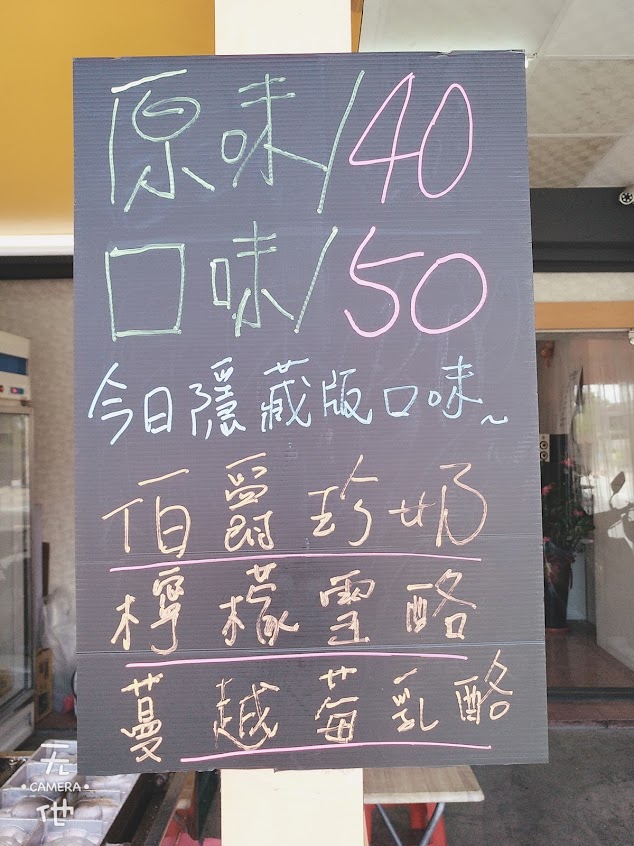 原味/40
口味/50
今日隱藏版口味~
伯爵珍奶
檸檬雪酪
蔓越莓乳酪
无
CAMERA
他